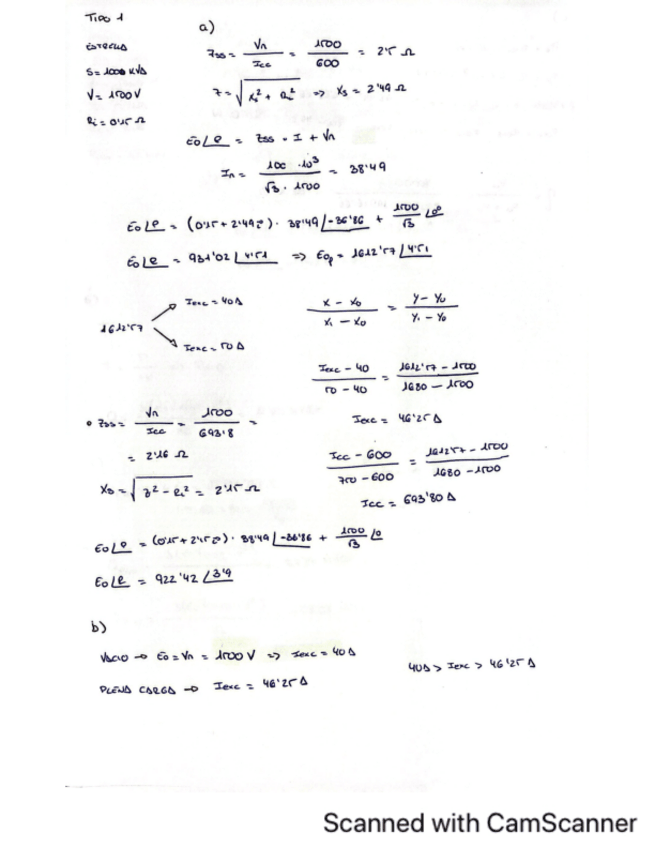 TIPO 1
a)
ESTRELLA
S = 1000 KVA
V = 1500 V
Ri = 0'15 Ω
Zss = Vn / Icc = 1500 / 600 = 2'5 Ω
Z = √(Xs² + Ri²) => Xs = 2'49 Ω
Eo∠φ = Zss · I + Vn
In = 100 · 10³ / √3 · 1500 = 38'49
Eo∠φ = (0'15 + 2'49j) · 38'49 ∠-36'86 + 1500/√3 ∠0°
Eo∠φ = 931'02 ∠4'51 => Eop = 1612'57 ∠4'51
1612'57
Iexc = 40A
Iexc = 50A
x - x0 / x1 - x0 = y - y0 / y1 - y0
Iexc - 40 / 50 - 40 = 1612'57 - 1500 / 1680 - 1500
Iexc = 46'25 A
• Zss = Vn / Icc = 1500 / 693'8 =
= 2'16 Ω
Icc - 600 / 750 - 600 = 1612'57 - 1500 / 1680 - 1500
Icc = 693'80 A
Xs = √(z² - Ri²) = 2'15 Ω
Eo∠φ = (0'15 + 2'15j) · 38'49 ∠-36'86 + 1500/√3 ∠0
Eo∠φ = 922'42 ∠3'9
b)
VACIO → Eo = Vn = 1500 V => Iexc = 40A
40A > Iexc > 46'25 A
PLENA CARGA → Iexc = 46'25 A
Scanned with CamScanner